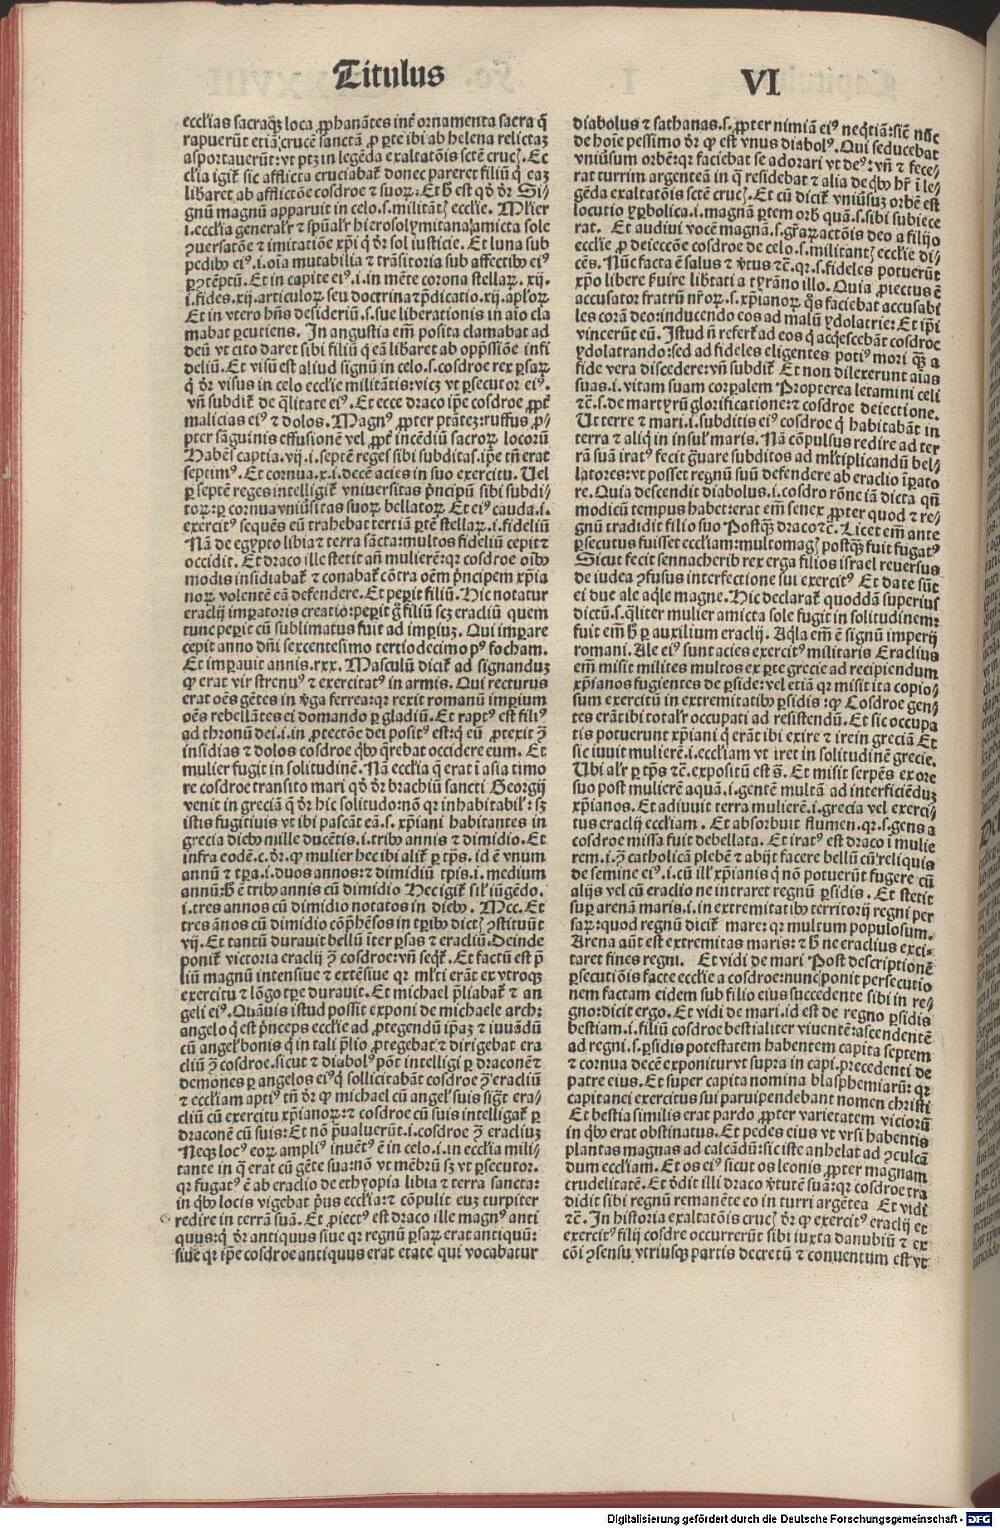 Titulus VI
eccłias sacraqȝ loca ꝓphanãtes int̃ ornamenta sacra q̃
rapuerũt etiã crucẽ sanctã ꝓ ꝑte ibi ab helena relictaꝫ
asportauerũt: vt ptꝫ in legẽda exaltatõis sctẽ cruc̃. Ec
cłia igit᷑ sic afflicta cruciabat᷑ donec pareret filiũ q̃ eaꝫ
lib̃aret ab afflictõe cosdroe ⁊ suoꝝ. Et h̃ est qď dr̃ Si⸗
gnũ magnũ apparuit in celo.s.militãt̃ eccłie. Młier
.i.ecclia generałr ⁊ spũałr hierosolymitana amicta sole
ꝯuersatõe ⁊ imitatiõe xp̃i q̃ dr̃ sol iusticie. Et luna sub
pedibꝰ eiꝰ.i.oĩa mutabilia ⁊ trãsitoria sub affectibꝰ eiꝰ
ꝑ ꝯtẽptũ. Et in capite eiꝰ.i.in mẽte corona stellaꝝ.xij.
.i.fides.xij.articuloꝝ seu doctrina ⁊ p̃dicatio.xij.apłoꝝ
Et in vtero hñs desideriũ.s.sue liberationis in aĩo cla
mabat ꝑcutiens. In angustia em̃ posita clamabat ad
deũ vt cito daret sibi filiũ q̃ eã lib̃aret ab opp̃ssiõe infi
deliũ. Et visũ est aliud signũ in celo.s.cosdroe rex ꝑsaꝝ
q̃ dr̃ visus in celo eccłie militãtis: vicꝫ vt ꝑsecutor eiꝰ.
vñ subdit᷑ de q̃litate eiꝰ. Et ecce draco ip̃e cosdroe ꝓpt̃
malicias eiꝰ ⁊ dolos. Magnꝰ ꝓpter ptãteꝫ: ruffus ꝓ⸗
pter sãguinis effusionẽ vel ꝓpt̃ incẽdiũ sacroꝝ locorũ
Habẽs capita.vij.i.septẽ reges sibi subditas.ip̃e tñ erat
septimꝰ. Et cornua.x.i.decẽ acies in suo exercitu. Uel
ꝑ septẽ reges intelligit᷑ vniuersitas p̃ncipũ sibi subdi⸗
toꝝ: ꝑ cornua vniũsitas suoꝝ bellatoꝝ. Et eiꝰ cauda.i.
exercitꝰ sequẽs eũ trahebat tertiã ꝑtẽ stellaꝝ.i.fideliũ
Nã de egypto libia ⁊ terra sãcta: multos fideliũ cepit ⁊
occidit. Et draco ille stetit añ mulierẽ: qꝛ cosdroe oĩbꝰ
modis insidiabat᷑ ⁊ conabat᷑ cõtra oẽm p̃ncipem xp̃ia
noꝝ volentẽ eã defendere. Et peꝑit filiũ. Hic notatur
eraclij imꝑatoris creatio: peꝑit g̃ filiũ scꝫ eracliũ quem
tunc peꝑit cũ sublimatus fuit ad imꝑiuꝫ. Qui imꝑare
cepit anno dñi sexcentesimo tertiodecimo pꝰ focham.
Et imꝑauit annis.xxx. Masculũ dicit᷑ ad signanduꝫ
ꝙ erat vir strenuꝰ ⁊ exercitatꝰ in armis. Qui recturus
erat oẽs gẽtes in v̾ga ferrea: qꝛ rexit romanũ imꝑium
oẽs rebellãtes ei domando ꝑ gladiũ. Et raptꝰ est filiꝰ
ad thronũ dei.i.in ꝓtectõe dei positꝰ est: q̃ eũ ꝓtexit ꝯ̃
insidias ⁊ dolos cosdroe q̃bꝰ q̃rebat occidere eum. Et
mulier fugit in solitudinẽ. Nã ecclia q̃ erat ĩ asia timo
re cosdroe transito mari qď dr̃ brachiũ sancti Georgij
venit in greciã q̃ dr̃ hic solitudo: nõ qꝛ inhabitabił: sꝫ
istis fugitiuis vt ibi pascãt eã.s.xp̃iani habitantes in
grecia diebꝰ mille ducẽtis.i.tribꝰ annis ⁊ dimidio. Et
infra eodẽ.c.dr̃. ꝙ mulier hec ibi alit᷑ ꝑ tp̃s. id ẽ vnum
annũ ⁊ tꝑa.i.duos annos: ⁊ dimidiũ tꝑis.i.medium
annũ: h̃ ẽ tribꝰ annis cũ dimidio Hec igit᷑ sił iũgẽdo.
.i.tres annos cũ dimidio notatos in diebꝰ. Mcc. Et
tres ãnos cũ dimidio cõp̃hẽsos in tꝑibꝰ dict̃ ꝯstituũt
vij. Et tantũ durauit bellũ ĩter ꝑsas ⁊ eracliũ. Deinde
ponit᷑ victoria eraclij ꝯ̃ cosdroe: vñ seq̃t᷑. Et factũ est p̃
liũ magnũ intensiue ⁊ extẽsiue qꝛ młti erãt ex vtroqꝫ
exercitu ⁊ lõgo tꝑe durauit. Et michael p̃liabat᷑ ⁊ an
geli eiꝰ. Quãuis istud possit exponi de michaele arch⸗
angelo q̃ est p̃nceps ecclie ad ꝓtegendũ ip̃aꝫ ⁊ iuuãdũ
cũ angel̾ bonis q̃ in tali p̃lio ꝓtegebat ⁊ dirigebat era
cliũ ꝯ̃ cosdroe.sicut ⁊ diabolꝰ põt intelligi ꝑ draconẽ ⁊
demones ꝑ angelos eiꝰ q̃ sollicitabãt cosdroe ꝯ̃ eracliũ
⁊ eccłiam aptiꝰ tñ dr̃ ꝙ michael cũ angel̾ suis sig̃t era⸗
cliũ cũ exercitu xp̃ianoꝝ: ⁊ cosdroe cũ suis intelligat᷑ ꝑ
draconẽ cũ suis: Et nõ p̃ualuerũt.i.cosdroe ꝯ̃ eracliuꝫ
Neqꝫ locꝰ eoꝝ ampliꝰ inuẽtꝰ ẽ in celo.i.in eccłia mili⸗
tante in q̃ erat cũ gẽte sua: nõ vt mẽbrũ sꝫ vt ꝑsecutor.
qꝛ fugatꝰ ẽ ab eraclio de ethyopia libia ⁊ terra sancta:
in q̃bꝰ locis vigebat p̃us eccłia: ⁊ cõpulit euꝫ turpiter
redire in terrã suã. Et ꝓiectꝰ est draco ille magnꝰ anti
quus: q̃ dr̃ antiquus siue qꝛ regnũ ꝑsaꝝ erat antiquũ:
siue qꝛ ip̃e cosdroe antiquus erat etate qui vocabatur
diabolus ⁊ sathanas.s.ꝓpter nimiã eiꝰ neq̃tiã: sic̃ nũc
de hoĩe pessimo dr̃ ꝙ est vnus diabolꝰ. Qui seducebat
vniũsum orbẽ: qꝛ faciebat se adorari vt deꝰ: vñ ⁊ fece⸗
rat turrim argenteã in q̃ residebat ⁊ alia de q̃bꝰ hr̃ ĩ le⸗
gẽda exaltatõis sctẽ cruc̃. Et cũ dicit᷑ vniũsuꝫ orbẽ est
locutio yꝑbolica.i.magnã ꝑtem orb̾ quã.s.sibi subiece
rat. Et audiui vocẽ magnã.s.gr̃aꝝ actõis deo a filijo
ecclie ꝓ deieccõe cosdroe de celo.s.militant̃ ecclie di⸗
cẽs. Nũc facta ẽ salus ⁊ v̾tus ⁊c̃.qꝛ.s.fideles potuerũt
xp̃o libere s̾uire lib̃tati a tyrãno illo. Quia ꝓiectus ẽ
accusator fratrũ nr̃oꝝ.s.xp̃ianoꝝ q̃s faciebat accusabi
les corã deo: inducendo eos ad malũ ydolatrie: Et ip̃i
vincerũt eũ. Istud ñ refert᷑ ad eos q̃ acq̃escebãt cosdroe
ydolatrando: sed ad fideles eligentes potiꝰ mori q̃ꝫ a
fide vera discedere: vñ subdit᷑ Et non dilexerunt aĩas
suas.i.vitam suam corꝑalem Propterea letamini celi
⁊c̃.s.de martyrũ glorificatione: ⁊ cosdroe deiectione.
Ut terre ⁊ mari.i.subditis eiꝰ cosdroe q̃ habitabãt in
terra ⁊ aliq̃ in insul̾ maris. Nã cõpulsus redire ad ter
rã suã iratꝰ fecit g̾uare subditos ad młtiplicandũ bel⸗
latores: vt posset regnũ suũ defendere ab eraclio ĩꝑato
re. Quia descendit diabolus.i.cosdro rõne iã dicta qm̃
modicũ tempus habet: erat em̃ senex ꝓpter quod ⁊ re⸗
gnũ tradidit filio suo Postq̃ꝫ draco ⁊c̃. Licet em̃ ante
ꝑsecutus fuisset eccłiam: multomag̾ postq̃ꝫ fuit fugatꝰ
Sicut fecit sennacherib rex erga filios israel reuersus
de iudea ꝯfusus interfectione sui exercitꝰ Et date sũt
ei due ale aq̃le magne. Hic declarat᷑ quoddã superius
dictũ.s.q̃liter mulier amicta sole fugit in solitudinem:
fuit em̃ h̃ ꝑ auxilium eraclij. Aq̃la em̃ ẽ signũ imperij
romani. Ale eiꝰ sunt acies exercitꝰ militaris Eraclius
em̃ misit milites multos ex ꝑte grecie ad recipiendum
xp̃ianos fugientes de ꝑside: vel etiã qꝛ misit ita copio⸗
sum exercitũ in extremitatibꝰ ꝑsidis: ꝙ Cosdroe gen⸗
tes erãt ibi totałr occupati ad resistendũ. Et sic occupa
tis potuerunt xp̃iani q̃ erãt ibi exire ⁊ ire in greciã Et
sic iuuit mulierẽ.i.eccłiam vt iret in solitudinẽ grecie.
Ubi alr̃ ꝑ tp̃s ⁊c̃. expositũ est s̃. Et misit serpẽs ex ore
suo post mulierẽ aquã.i.gentẽ multã ad interficiẽduꝫ
xp̃ianos. Et adiuuit terra mulierẽ.i.grecia vel exerci⸗
tus eraclij eccłiam. Et absorbuit flumen.qꝛ.s.gens a
cosdroe missa fuit debellata. Et iratꝰ est draco ĩ mulie
rem.i.ꝯ̃ catholicã plebẽ ⁊ abijt facere bellũ cũ reliquis
de semine eiꝰ.i.cũ ill̾ xp̃ianis q̃ nõ potuerũt fugere cũ
alijs vel cũ eraclio ne intraret regnũ ꝑsidis. Et stetit
suꝑ arenã maris.i.in extremitatibꝰ territorij regni per
saꝝ: quod regnũ dicit᷑ mare: qꝛ multum populosum.
Arena aũt est extremitas maris: ⁊ h̃ ne eraclius exci⸗
taret fines regni. Et vidi de mari Post descriptionẽ
ꝑsecutiõis facte ecclie a cosdroe: nunc ponit persecutio
nem factam eidem sub filio eius succedente sibi in re⸗
gno: dicit ergo. Et vidi de mari.id est de regno ꝑsidis
bestiam.i.filiũ cosdroe bestialiter viuentẽ: ascendentẽ
ad regni.s.ꝑsidis potestatem habentem capita septem
⁊ cornua decẽ exponitur vt supra in capi.precedenti de
patre eius. Et super capita nomina blasphemiarũ: qꝛ
capitanei exercitus sui paruipendebant nomen christi
Et bestia similis erat pardo ꝓpter varietatem viciorũ
in q̃bꝰ erat obstinatus. Et pedes eius vt vrsi habentis
plantas magnas ad calcãdũ: sic iste anhelat ad ꝯculcã
dum eccłiam. Et os eiꝰ sicut os leonis ꝓpter magnam
crudelitatẽ. Et dedit illi draco v̾tutẽ suã: qꝛ cosdroe tra
didit sibi regnũ remanẽte eo in turri argẽtea Et vidi
⁊c̃. In historia exaltatõis cruc̾ dr̃ ꝙ exercitꝰ eraclij et
exercitꝰ filij cosdre occurrerũt sibi iuxta danubiũ ⁊ ex
cõi ꝯsensu vtriusqꝫ partis decretũ ⁊ conuentum est vt
Digitalisierung gefördert durch die Deutsche Forschungsgemeinschaft - DFG